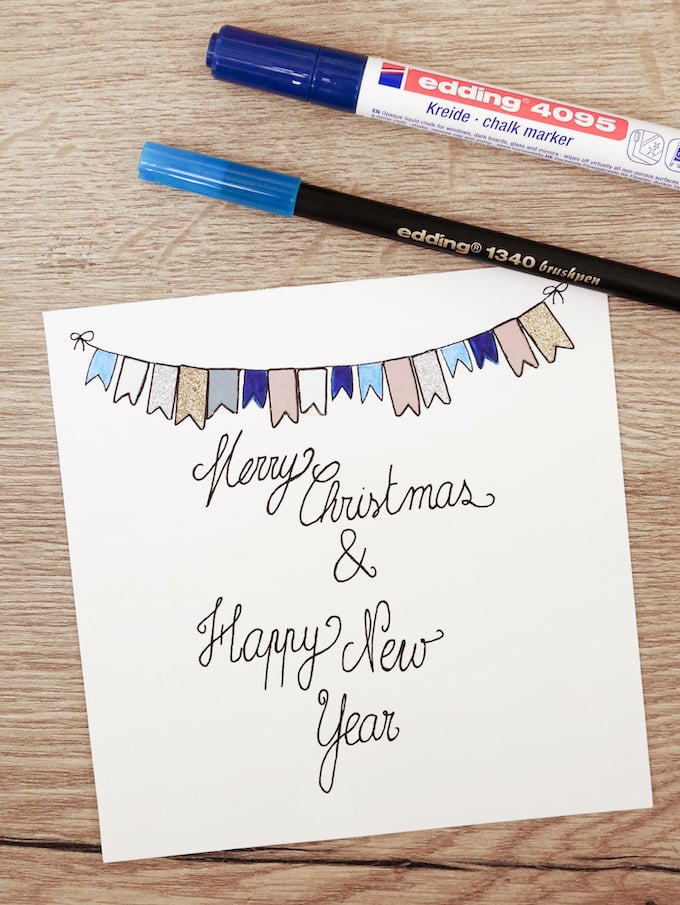 edding® 4095
Kreide · chalk marker
EN Opaque liquid chalk for windows, dark boards, glass and mirrors · wipes off virtually all non-porous surfaces
edding® 1340 brushpen
Merry
Christmas
&
Happy New
Year